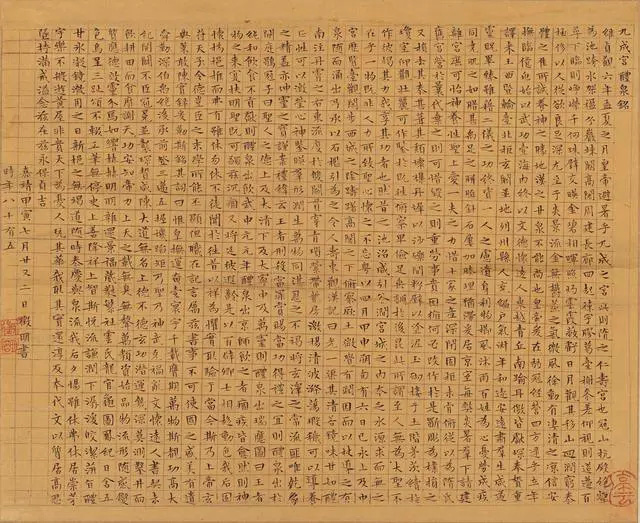 九成宮醴泉銘
維貞觀六年孟夏之月皇帝避暑乎九成之宮此則隋之仁壽宮也冠山抗殿絕壑
為池跨水架楹分巖竦闕高閣周建長廊四起棟宇膠葛臺榭參差仰視則迢遞百
尋下臨則崢嶸千仞珠璧交映金碧相暉照灼雲霞蔽虧日月觀其移山迴澗窮泰
極侈以人從欲良足深尤至于炎景流金無鬱蒸之氣微風徐動有淒清之涼信安
體之佳所誠養神之勝地漢之甘泉不能尚也皇帝爰在弱冠經營四方逮乎立年
撫臨億兆始以武功壹海內終以文德懷遠人東越青丘南踰丹徼皆獻琛奉贄重
譯來王西暨輪臺北拒玄闕並地列州縣人充編戶氣淑年和邇安遠肅羣生咸遂
靈貺畢臻雖藉二儀之功終資一人之慮遺身利物櫛風沐雨百姓為心憂勞成疾
同堯肌之如腊甚禹足之胼胝針石屢加腠理猶滯爰居京室每弊炎暑羣下請建
離宮庶可怡神養性聖上愛一夫之力惜十家之產深閉固拒未肯俯從以為隋氏
舊宮營於曩代棄之則可惜毀之則重勞事貴因循何必改作於是斲彫為樸損之
又損去其泰甚葺其頹壞雜丹墀以沙礫間粉壁以塗泥玉砌接於土階茅茨續於
瓊室仰觀壯麗可作鑒於既往俯察卑儉足垂訓於後昆此所謂至人無為大聖不
作彼竭其力我享其功者也然昔之池沼咸引谷澗宮城之內本乏水源求而無之
在乎一物既非人力所致聖心懷之不忘粵以四月甲申朔旬有六日己亥上及中
宮歷覽臺觀閑步西城之陰躊躇高閣之下俯察厥土微覺有潤因而以杖導之有
泉隨而涌出乃承以石檻引為之令人壽東觀漢記曰一渠其清若鏡味甘如醴
南注丹霄之右東流度於雙闕貫穿青瑣縈帶紫房激揚清波滌蕩瑕穢可以導養
正性可以澂瑩心神鑒映羣形潤生萬物同湛恩之不竭將玄澤之常流匪唯乾象
之精蓋亦坤靈之寶謹案禮緯云王者刑殺當罪賞錫當功得禮之宜則醴泉出於
闕庭鶡冠子曰聖人之德上及太清下及太寧中及萬靈則醴泉出瑞應圖曰王者
純和飲食不貢獻則醴泉出飲光武中元元年醴泉出京師飲之者痼疾皆愈然則神
物之來寔扶明聖既可蠲茲沉痼又將延彼遐齡是以百辟卿士相趨動色我后固
懷撝挹推而弗有雖休勿休不徒聞於往昔以祥為懼實取驗於當今斯乃上帝玄
符天子令德豈臣之末學所能丕顯但職在記言屬茲書事不可使國之盛美有遺
典策敢陳實錄爰勒斯銘其詞曰惟皇撫運奄壹寰宇千載膺期萬物斯覩功高大
舜勤深伯禹絕後光前登三邁五握機蹈矩乃聖乃神武克禍亂文懷遠人書契未
紀開闢不臣冠冕並襲琛贄咸陳大道無名上德不德玄功潛運幾深莫測鑿井而
飲耕田而食靡謝天功安知帝力上天之載無臭無聲萬類資始品物流形隨感變
質應德效靈介焉如響赫赫明明雜遝景福葳蕤繁祉雲氏龍官龜圖鳳紀日含五
色烏呈三趾頌不輟工筆無停史上善降祥上智斯悅流謙潤下潺湲皎潔蓱旨醴
甘冰凝鏡澈用之日新挹之無竭道隨時泰慶與泉流我后夕惕雖休弗休居崇茅
宇樂不般遊黃屋非貴天下為憂人玩其華我取其實還淳反本代文以質居高思
墜持滿戒溢念茲在茲永保貞吉
嘉靖甲寅七月廿又二日徵明書
時年八十有五